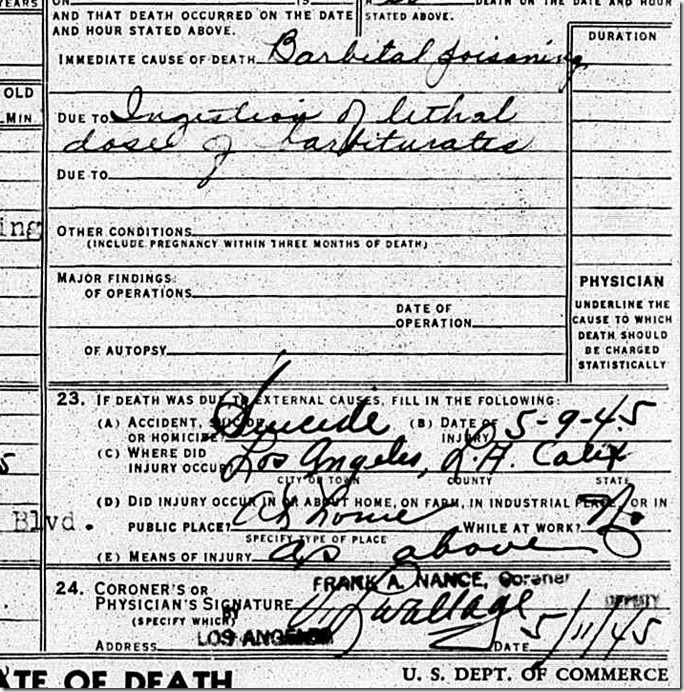 YEARS
ON 19 DEATH ON THE DATE AND HOUR
AND THAT DEATH OCCURRED ON THE DATE STATED ABOVE.
AND HOUR STATED ABOVE.
DURATION
IMMEDIATE CAUSE OF DEATH Barbital poisoning
OLD
MIN.
DUE TO Ingestion of lethal
dose of barbiturates
DUE TO
ing
OTHER CONDITIONS
(INCLUDE PREGNANCY WITHIN THREE MONTHS OF DEATH)
MAJOR FINDINGS:
OF OPERATIONS
DATE OF
OPERATION
OF AUTOPSY
PHYSICIAN
UNDERLINE THE
CAUSE TO WHICH
DEATH SHOULD
BE CHARGED
STATISTICALLY
23. IF DEATH WAS DUE TO EXTERNAL CAUSES, FILL IN THE FOLLOWING:
(A) ACCIDENT, SUICIDE Suicide (B) DATE OF 5-9-45
OR HOMICIDE? INJURY
(C) WHERE DID Los Angeles, L.A. Calif
INJURY OCCUR?
CITY OR TOWN COUNTY STATE
(D) DID INJURY OCCUR IN OR ABOUT HOME, ON FARM, IN INDUSTRIAL PLACE, OR IN
Blvd.
PUBLIC PLACE? At home WHILE AT WORK? No
SPECIFY TYPE OF PLACE
(E) MEANS OF INJURY as above
24. CORONER'S OR FRANK A. NANCE, Coroner
PHYSICIAN'S SIGNATURE BY Wallage DEPUTY
(SPECIFY WHICH)
ADDRESS LOS ANGELES DATE 5/11/45
ATE OF DEATH
U. S. DEPT. OF COMMERCE